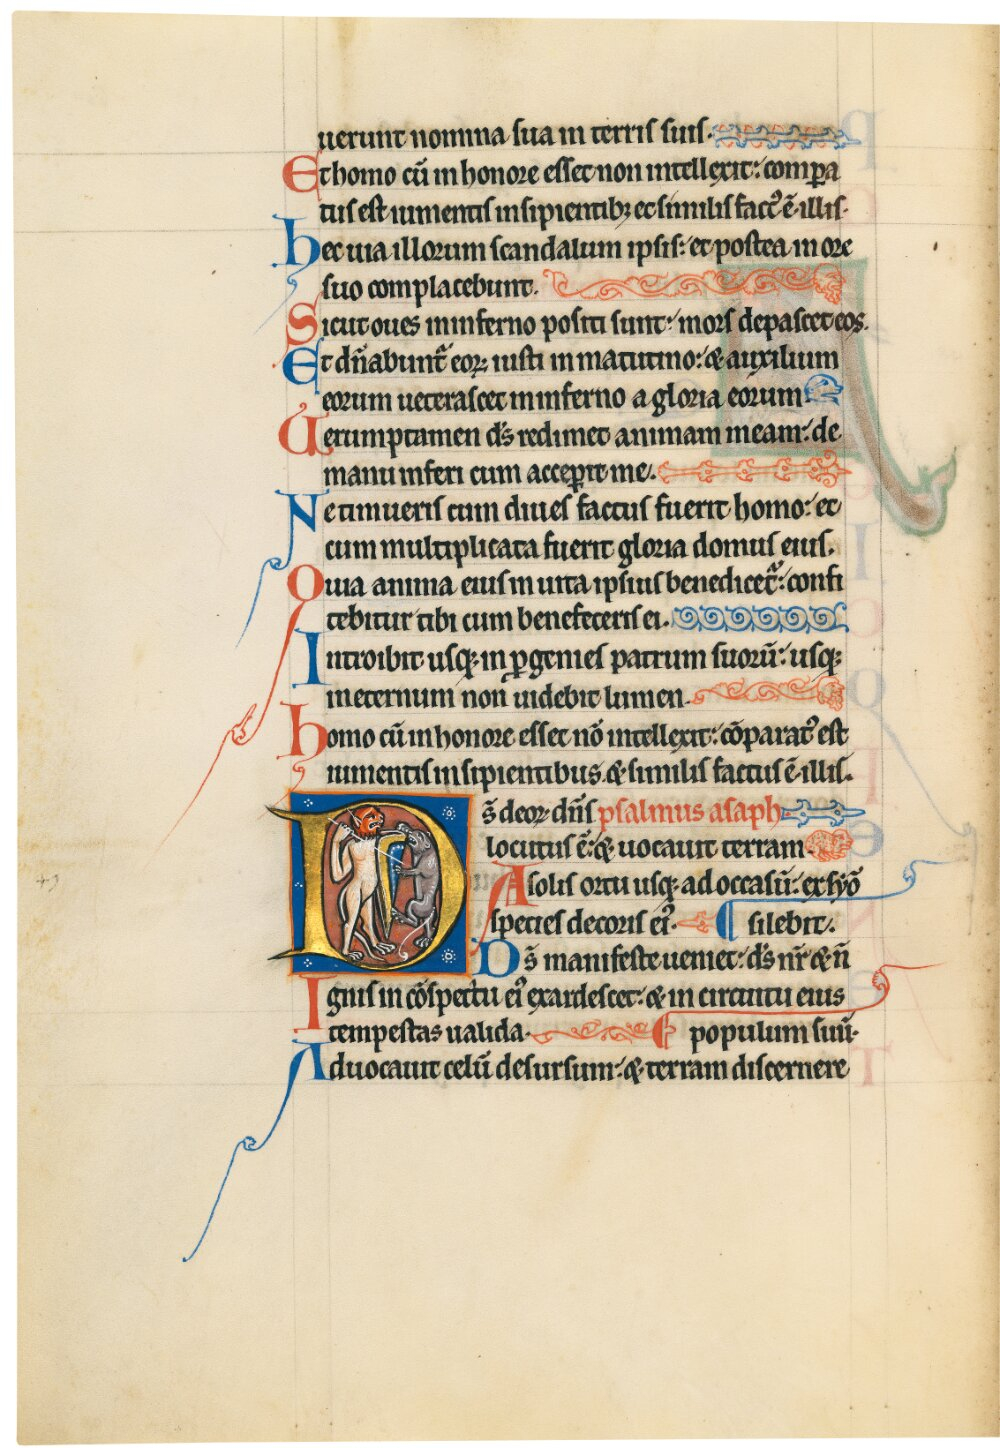 uerunt nomina sua in terris suis.
Et homo cū in honore esset non intellexit: compa
tus est iumentis insipientibꝫ et similis factꝰ ē illis.
hec uia illorum scandalum ipsis: et postea in ore
suo complacebunt.
Sicut oues in inferno positi sunt: mors depascet eos.
Et dn̄abunt̄ eoꝝ iusti in matutino: & auxilium
eorum ueterascet in inferno a gloria eorum.
Uerumptamen ds̄ redimet animam meam: de
manu inferi cum acceperit me.
Ne timueris cum diues factus fuerit homo: et
cum multiplicata fuerit gloria domus eius.
Quia anima eius in uita ipsius benedicet᷑: confi
tebitur tibi cum benefeceris ei.
Introibit usqꝫ in ꝓgenies patrum suorū: usqꝫ
in eternum non uidebit lumen.
homo cū in honore esset nō intellexit: cōparatꝰ est
iumentis insipientibus & similis factus ē illis.
Ds̄ deoꝝ dn̄s psalmus asaph
locutus ē: & uocauit terram.
A solis ortu usqꝫ ad occasū: ex syō
species decoris eiꝰ. silebit.
Ds̄ manifeste ueniet: ds̄ nr̄ & n̄
Ignis in cōspectu eiꝰ exardescet: & in circuitu eius
tempestas ualida. populum suū.
Aduocauit celū desursum: & terram discernere